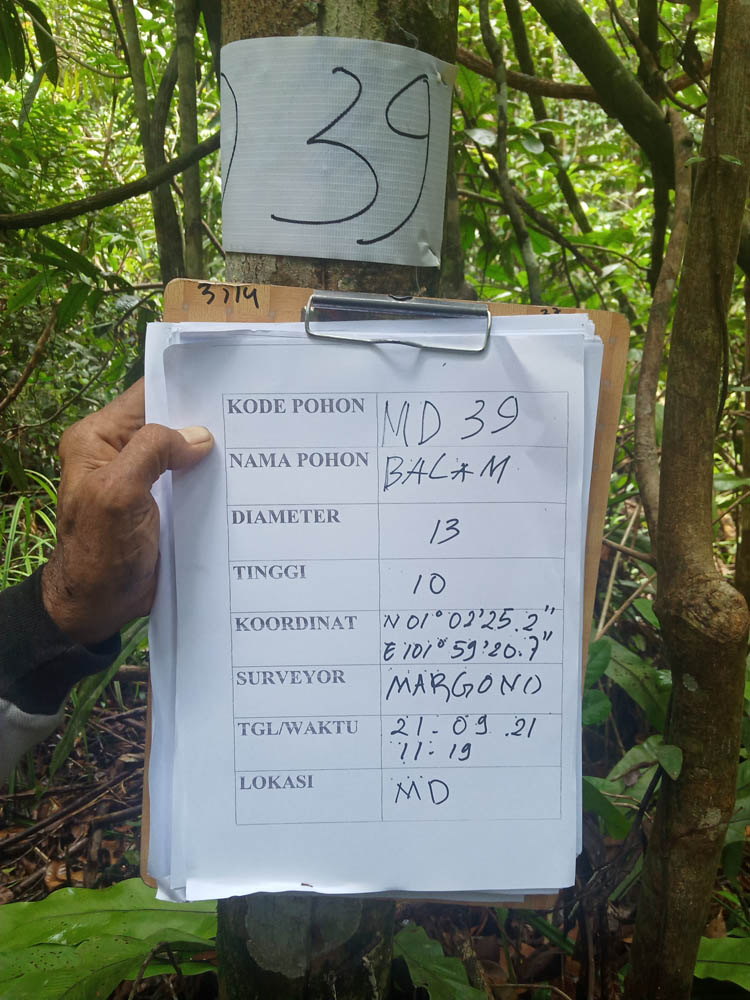 39
3314
KODE POHON MD 39
NAMA POHON BALAM
DIAMETER 13
TINGGI 10
KOORDINAT N 01° 02'25.2"
E 101° 59'20.7"
SURVEYOR MARGONO
TGL/WAKTU 21-09.21
11-19
LOKASI MD